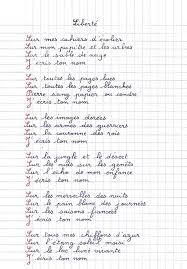 Liberté
Sur mes cahiers d'écolier
Sur mon pupitre et les arbres
Sur le sable de neige
J'écris ton nom
Sur toutes les pages lues
Sur toutes les pages blanches
Pierre sang papier ou cendre
J'écris ton nom
Sur les images dorées
Sur les armes des guerriers
Sur la couronne des rois
J'écris ton nom
Sur la jungle et le désert
Sur les nids sur les genêts
Sur l'écho de mon enfance
J'écris ton nom
Sur les merveilles des nuits
Sur le pain blanc des journées
Sur les saisons fiancées
J'écris ton nom
Sur tous mes chiffons d'azur
Sur l'étang soleil moisi
Sur le lac lune vivante
J'écris ton nom